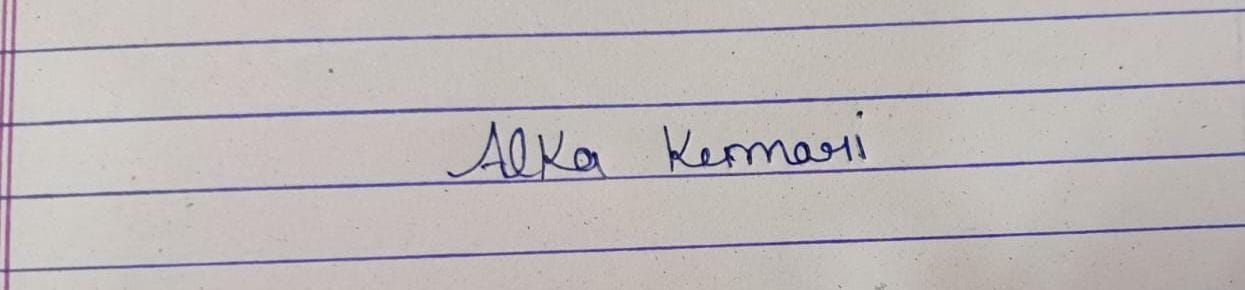 Alka Kermari